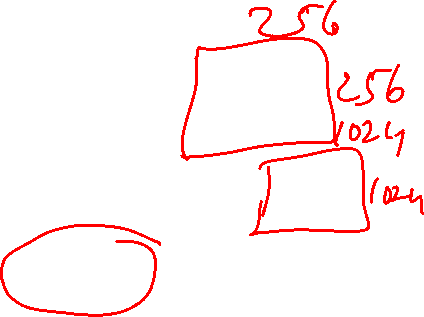 256
256
1024
1024